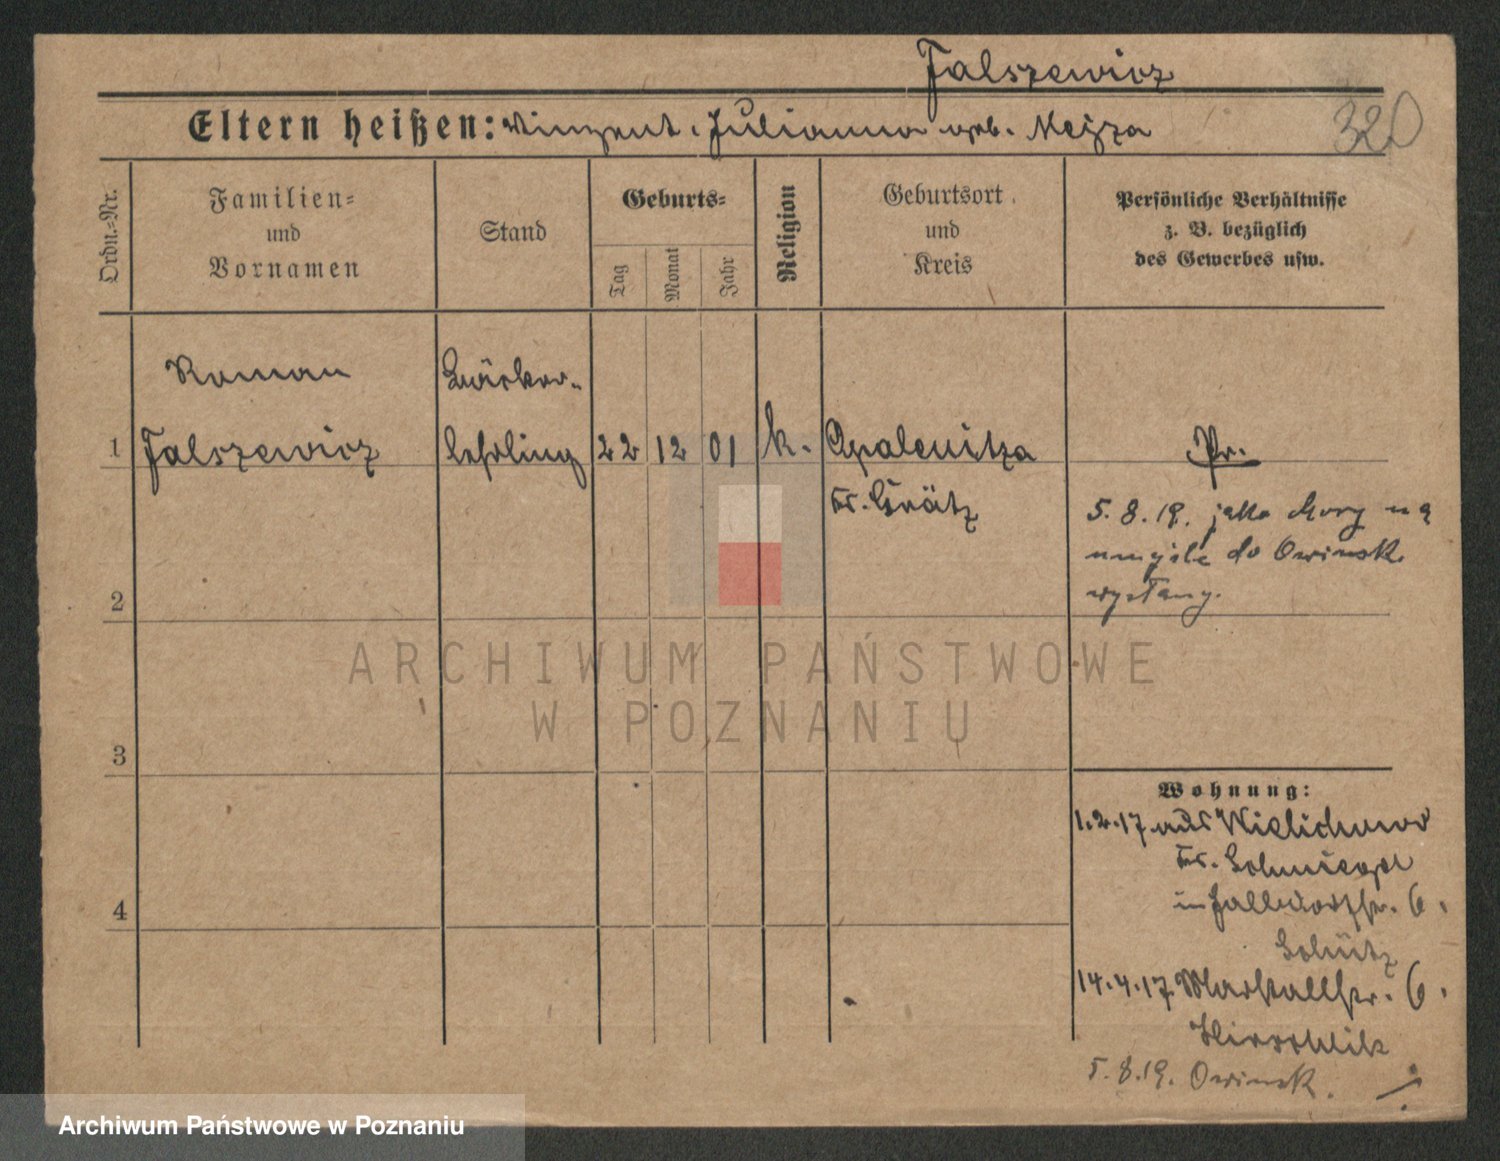 Falszewicz
Eltern heißen: Vinzent, Julianna geb. Nejza
320
Ordn.-Nr.
Familien-
und
Vornamen
Stand
Geburts-
Tag
Monat
Jahr
Religion
Geburtsort
und
Kreis
Persönliche Verhältnisse
z. B. bezüglich
des Gewerbes usw.
Roman
Bäcker-
1 Falszewicz lehrling 22 12 01 k. Opalenitza Pr.
Kr. Grätz
5.8.19. jako chory na
umyśle do Owinsk
wysłany.
2
ARCHIWUM PAŃSTWOWE
W POZNANIU
3
Wohnung:
1.2.17 aus Wielichowo
Kr. Schmiegel
in Halldorfstr. 6.
Schütz
4
14.4.17 Marstallstr. 6.
5.8.19. Owinsk.
Archiwum Państwowe w Poznaniu